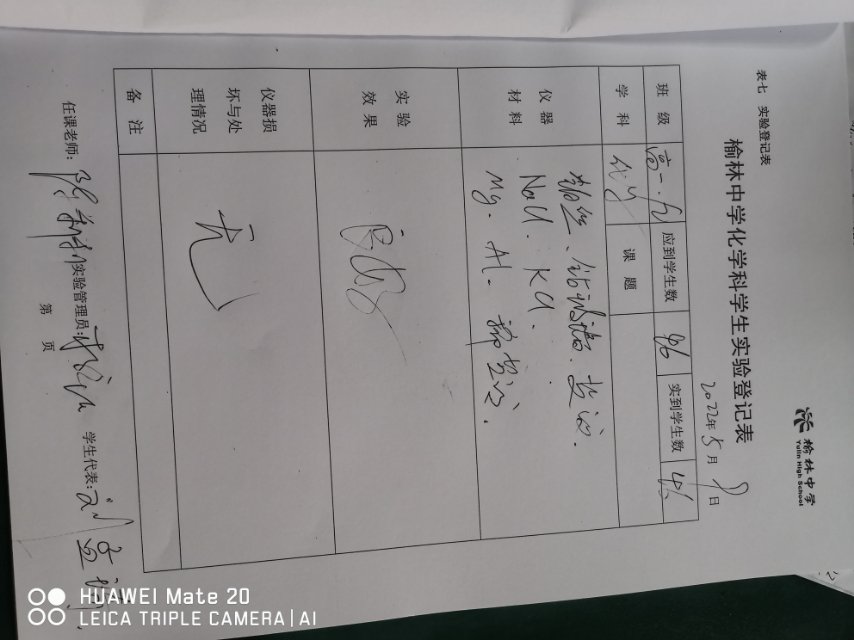 榆林中学
Yulin High School
表七 实验登记表
榆林中学化学科学生实验登记表
2022年5月 日
班级 高一 应到学生数 46 实到学生数 46
学科 化学 课题
仪器材料
NaCl. KCl.
Mg. Al. 稀
实验效果 良好
仪器损坏与处理情况 无
备注
任课老师: 实验管理员: 学生代表:
第 页
HUAWEI Mate 20
LEICA TRIPLE CAMERA | AI